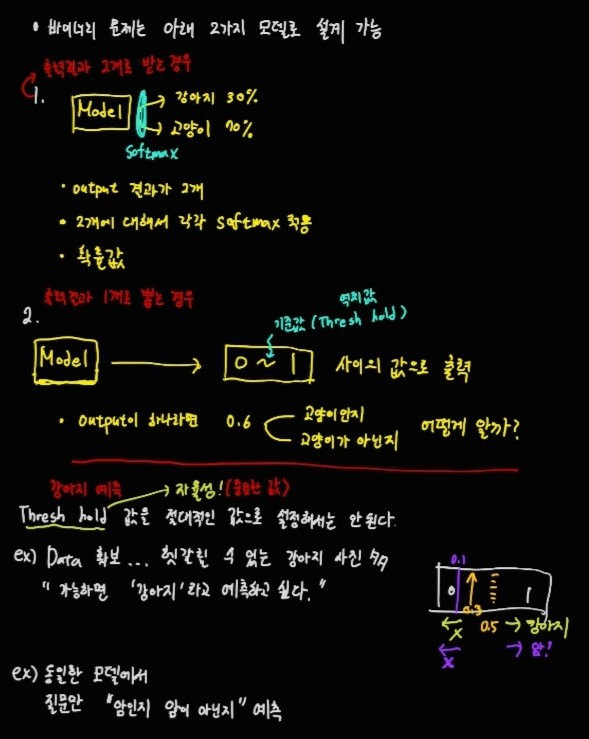 • 바이너리 문제는 아래 2가지 모델로 설계 가능
출력결과 2개로 받는 경우
1.
Model
강아지 30%
고양이 70%
Softmax
• output 결과가 2개
• 2개에 대해서 각각 softmax 적용
• 확률값
출력결과 1개로 뽑는 경우
2.
역치값
기준값 (Thresh hold)
Model 0 ~ 1 사이의 값으로 출력
• Output이 하나라면 0.6
고양이인지
고양이가 아닌지
어떻게 알까?
강아지 예측 → 자율성! (중요한 값)
Thresh hold 값을 절대적인 값으로 설정해서는 안된다.
ex) Data 확보... 헷갈릴 수 있는 강아지 사진
" 가능하면 '강아지'라고 예측하고 싶다. "
0.1
0 1
0.3
X 0.5 → 강아지
X → 암!
ex) 동일한 모델에서
질문만 "암인지 암이 아닌지" 예측